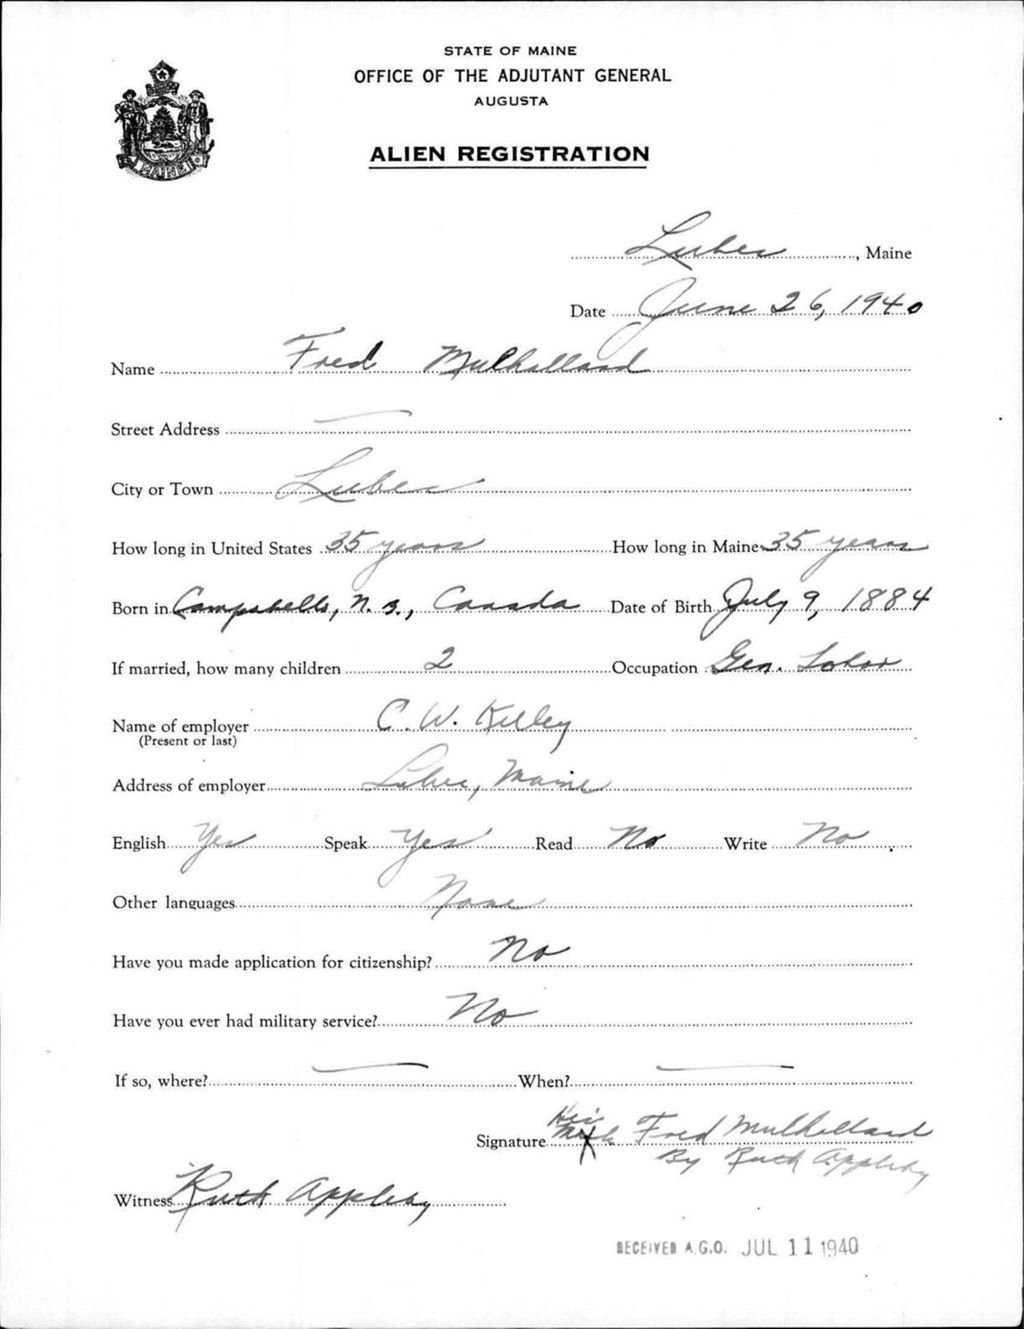 STATE OF MAINE
OFFICE OF THE ADJUTANT GENERAL
AUGUSTA
MAINE
ALIEN REGISTRATION
Lubec, Maine
Date June 26, 1940
Name Fred Mulholland
Street Address —
City or Town Lubec
How long in United States 35 years How long in Maine 35 years
Born in Campobello, N.B., Canada Date of Birth July 9, 1884
If married, how many children 2 Occupation Gen. Labor
Name of employer C. W. Kelley
(Present or last)
Address of employer Lubec, Maine
English Yes Speak Yes Read No Write No
Other languages None
Have you made application for citizenship? No
Have you ever had military service? No
If so, where? — When? —
His
Signature Mark X Fred Mulholland
By Ruth Appleby
Witness Ruth Appleby
RECEIVED A.G.O. JUL 11 1940